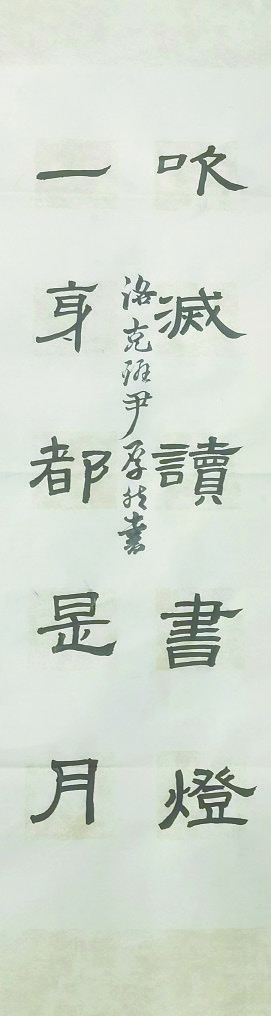 吹滅讀書燈
一身都是月
洛克班尹厚然書